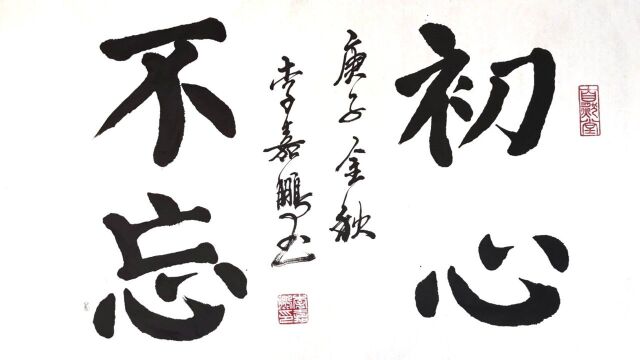 初心
庚子金秋
李嘉鵬书
不忘